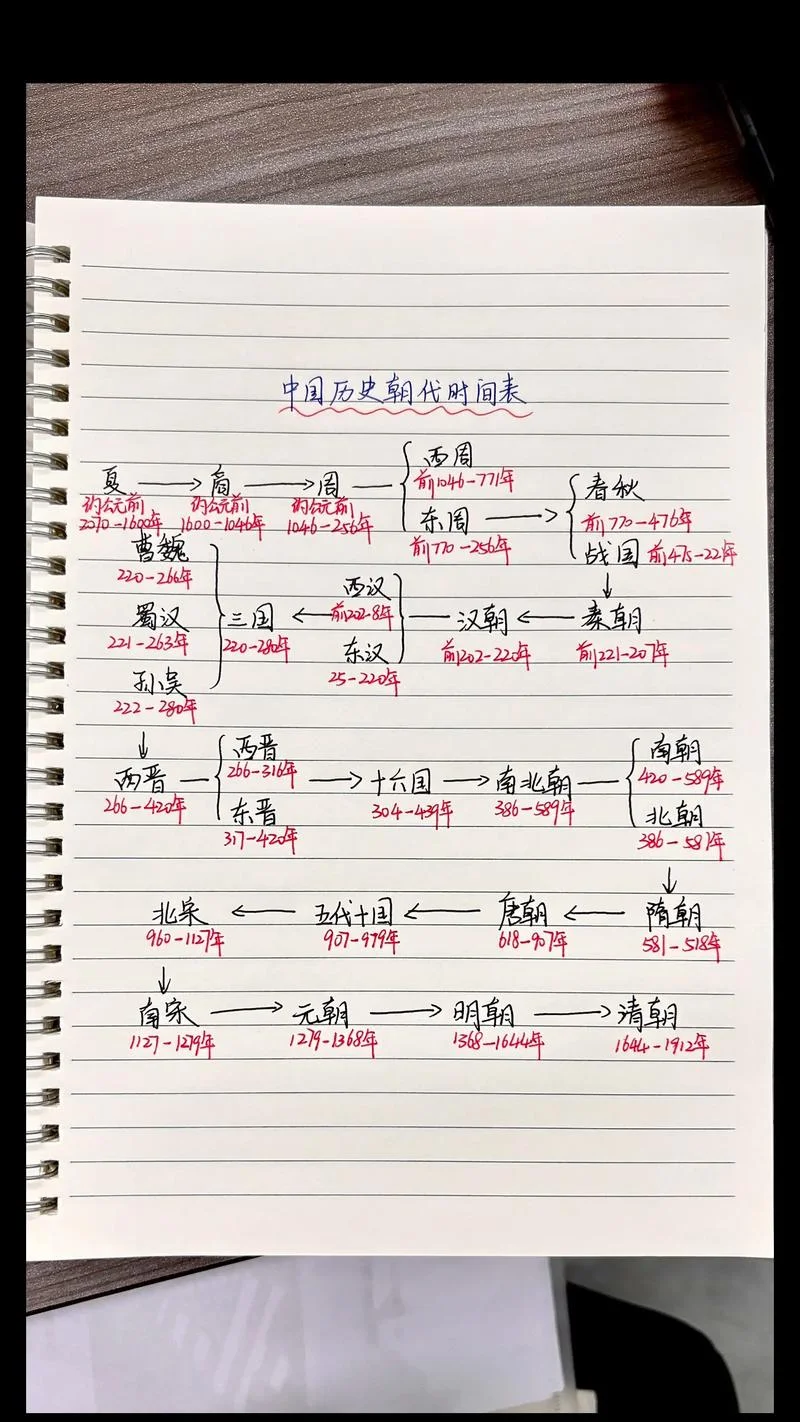 中国历史朝代时间表
夏 → 商 → 周 — { 西周
前1046-771年
约公元前 约公元前 约公元前
2070-1600年 1600-1046年 1046-256年
东周 → { 春秋
前770-256年 前770-476年
战国 前475-221年
曹魏
220-266年
蜀汉
221-263年
孙吴
222-280年
三国 ← 西汉
220-280年 前202-8年
东汉
25-220年
汉朝 ← 秦朝
前202-220年 前221-207年
两晋 — { 西晋
266-420年 266-316年
东晋
317-420年
→ 十六国 → 南北朝 — { 南朝
304-439年 386-589年 420-589年
北朝
386-581年
北宋 ← 五代十国 ← 唐朝 ← 隋朝
960-1127年 907-979年 618-907年 581-518年
南宋 → 元朝 → 明朝 → 清朝
1127-1279年 1279-1368年 1368-1644年 1644-1912年